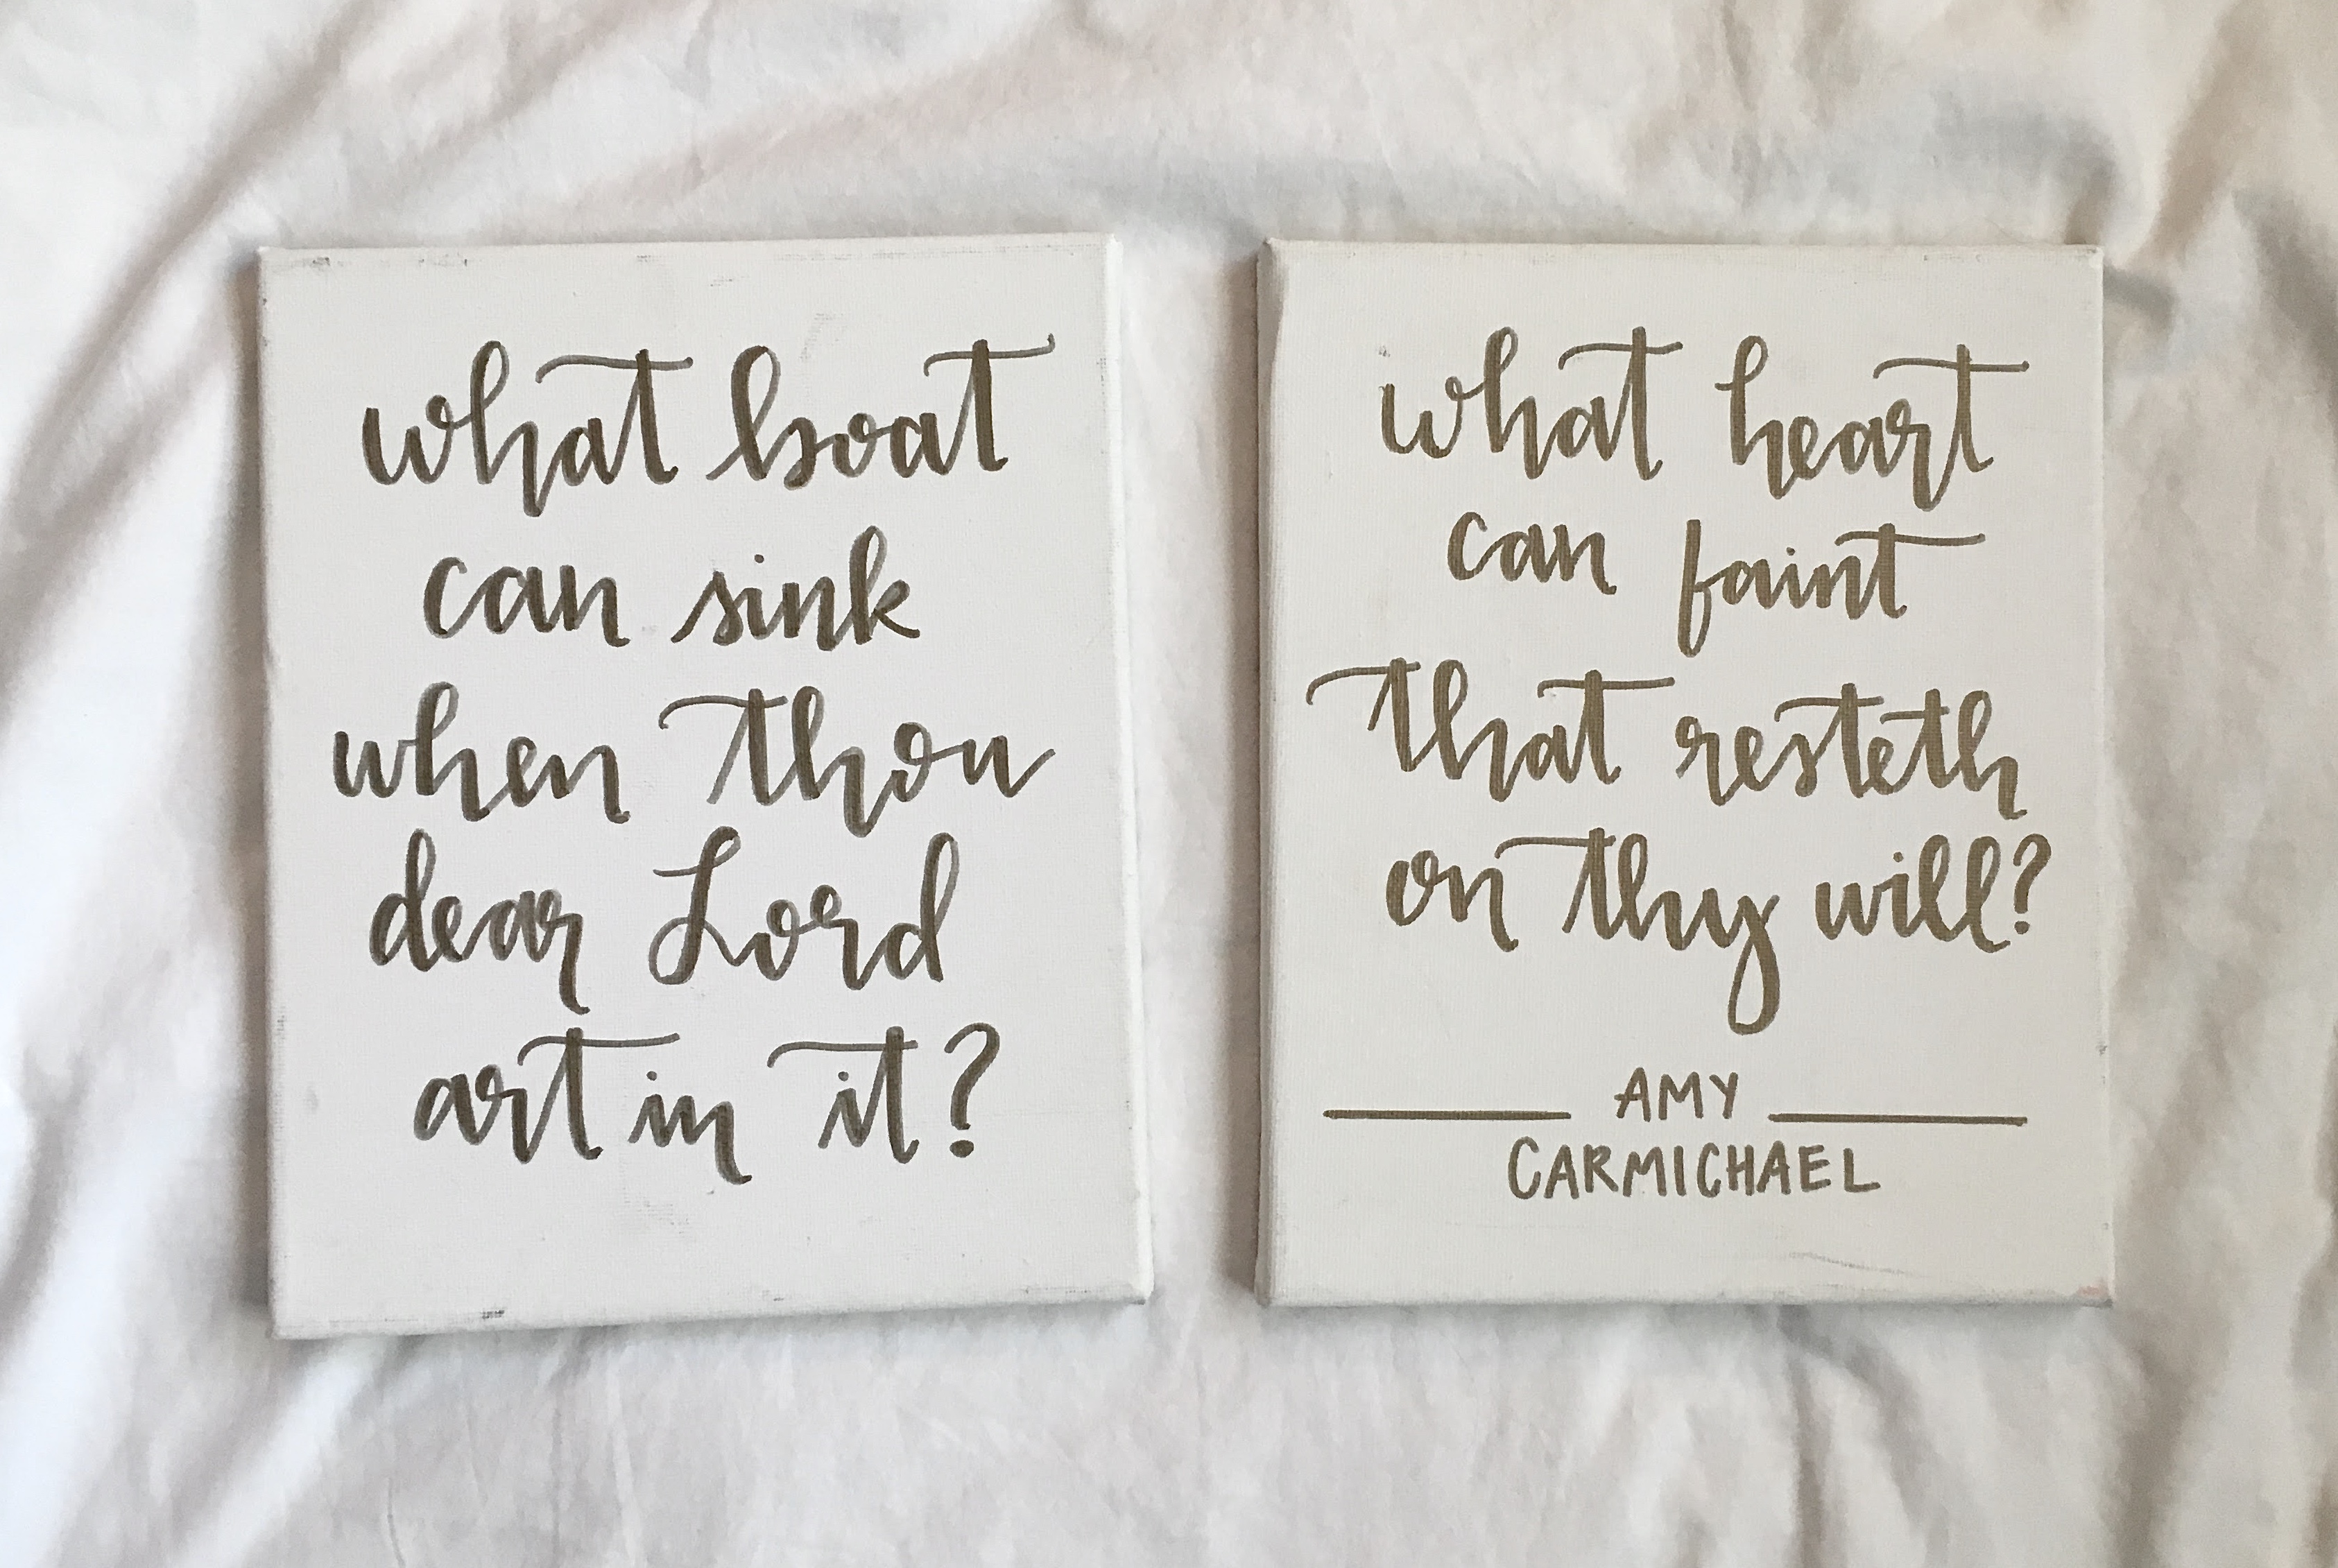 what boat
can sink
when thou
dear Lord
art in it?
what heart
can faint
that resteth
on thy will?
AMY
CARMICHAEL